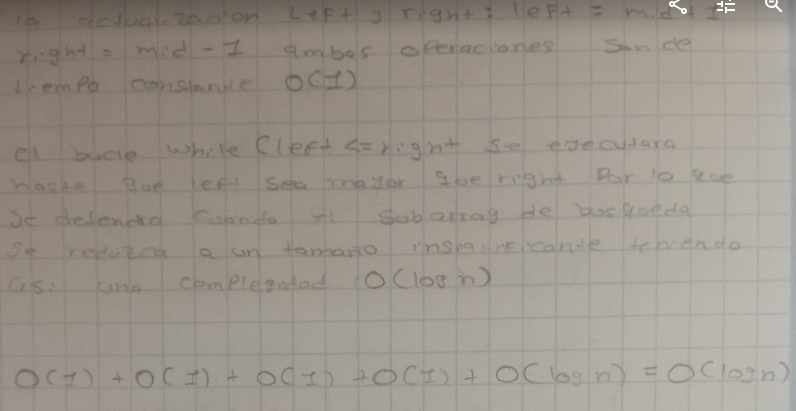 la actualizacion left y right: left = mid + 1
right = mid - 1 ambas operaciones son de
tiempo constante O(1)
el bucle while (left <= right se ejecutara
hasta que left sea mayor que right Por lo que
se detendra cuando el subarray de busqueda
se reduzca a un tamano insignificante teniendo
asi una complegidad O(log n)
O(1) + O(1) + O(1) + O(1) + O(log n) = O(log n)